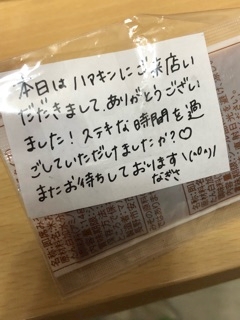 本日はハマキンにご来店い
ただきまして、ありがとうござい
ました！ステキな時間を過
ごしていただけましたか？♡
またお待ちしております＼(^o^)/
なぎさ